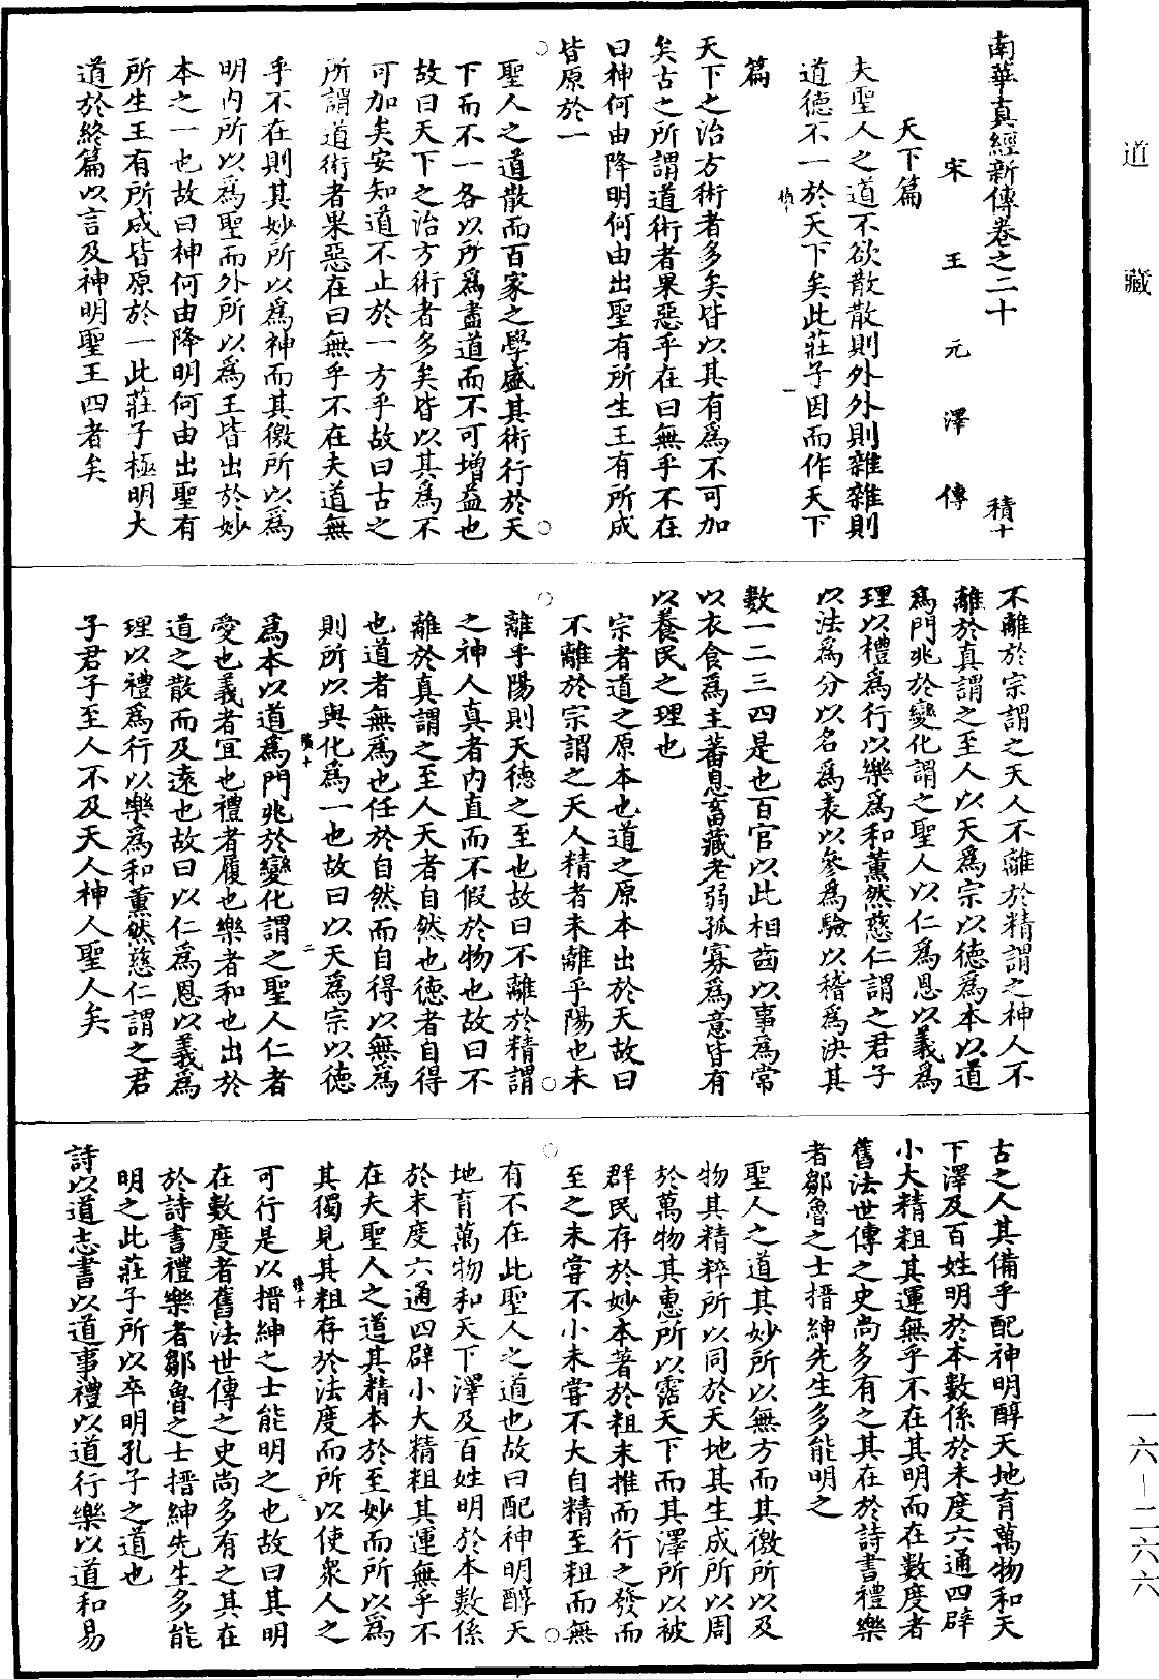 南華真經新傳卷之二十
積十
宋王元澤傳
天下篇
夫聖人之道不欲散散則外外則雜雜則
道德不一於天下矣此莊子因而作天下
篇
天下之治方術者多矣皆以其有為不可加
矣古之所謂道術者果惡乎在曰無乎不在
曰神何由降明何由出聖有所生王有所成
皆原於一
聖人之道散而百家之學盛其術行於天
下而不一各以所為盡道而不可增益也
故曰天下之治方術者多矣皆以其為不
可加矣安知道不止於一方乎故曰古之
所謂道術者果惡在曰無乎不在夫道無
乎不在則其妙所以為神而其徼所以為
明內所以為聖而外所以為王皆出於妙
本之一也故曰神何由降明何由出聖有
所生王有所成皆原於一此莊子極明大
道於終篇以言及神明聖王四者矣
不離於宗謂之天人不離於精謂之神人不
離於真謂之至人以天為宗以德為本以道
為門兆於變化謂之聖人以仁為恩以義為
理以禮為行以樂為和薰然慈仁謂之君子
以法為分以名為表以參為驗以稽為決其
數一二三四是也百官以此相齒以事為常
以衣食為主蕃息畜藏老弱孤寡為意皆有
以養民之理也
宗者道之原本也道之原本出於天故曰
不離於宗謂之天人精者未離乎陽也未
離乎陽則天德之至也故曰不離於精謂
之神人真者內直而不假於物也故曰不
離於真謂之至人天者自然也德者自得
也道者無為也任於自然而自得以無為
則所以與化為一也故曰以天為宗以德
為本以道為門兆於變化謂之聖人仁者
愛也義者宜也禮者履也樂者和也出於
道之散而及遠也故曰以仁為恩以義為
理以禮為行以樂為和薰然慈仁謂之君
子君子至人不及天人神人聖人矣
古之人其備乎配神明醇天地育萬物和天
下澤及百姓明於本數係於末度六通四辟
小大精粗其運無乎不在其明而在數度者
舊法世傳之史尚多有之其在於詩書禮樂
者鄒魯之士搢紳先生多能明之
聖人之道其妙所以無方而其徼所以及
物其精粹所以同於天地其生成所以周
於萬物其惠所以霑天下而其澤所以被
群民存於妙本著於粗末推而行之發而
至之未嘗不小未嘗不大自精至粗而無
有不在此聖人之道也故曰配神明醇天
地育萬物和天下澤及百姓明於本數係
於末度六通四辟小大精粗其運無乎不
在夫聖人之道其精本於至妙而所以為
其獨見其粗存於法度而所以使眾人之
可行是以搢紳之士能明之也故曰其明
在數度者舊法世傳之史尚多有之其在
於詩書禮樂者鄒魯之士搢紳先生多能
明之此莊子所以卒明孔子之道也
詩以道志書以道事禮以道行樂以道和易
道藏
一六－二六六